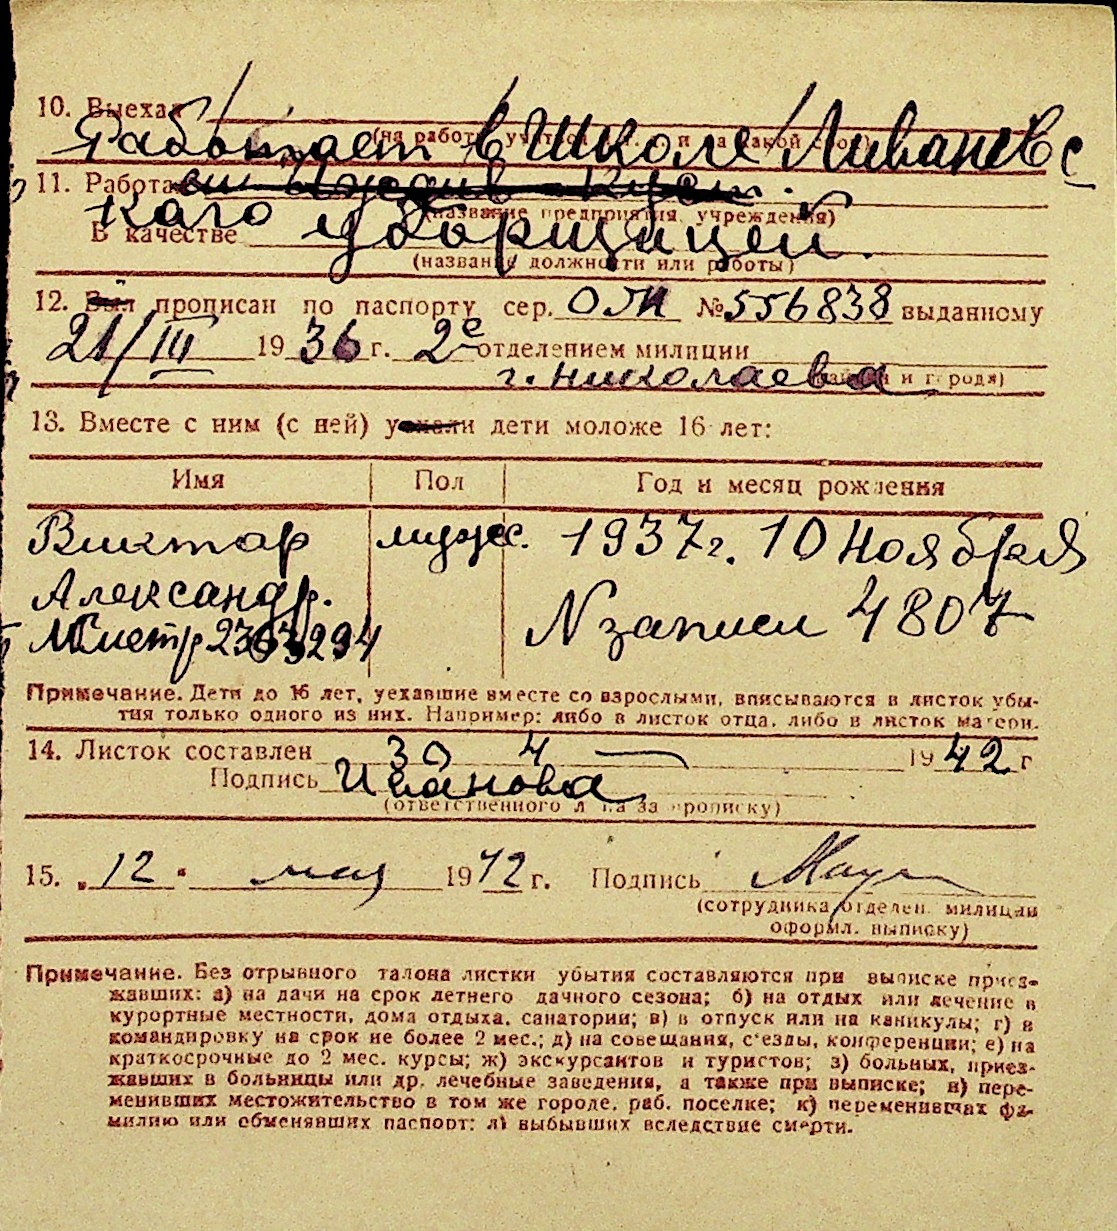 10. Выехал
(на работу, учиться и т. п. и на какой срок)
Работает в Школе Ливаневс
11. Работал
(название предприятия, учреждения)
каго уборщицей
В качестве
(название должности или работы)
12. Был прописан по паспорту сер. ОЛК № 556838 выданному
21/III 1936 г. 2е отделением милиции
г. Николаева
13. Вместе с ним (с ней) уехали дети моложе 16 лет:
Имя Пол Год и месяц рождения
Виктар мужс. 1937 г. 10 Ноября
Александр. N записи 4807
Метр 2363294
Примечание. Дети до 16 лет, уехавшие вместе со взрослыми, вписываются в листок убы-
тия только одного из них. Например: либо в листок отца, либо в листок матери.
14. Листок составлен 30 4 1942 г
Подпись Иванова
(ответственного лица за прописку)
15. „12“ мая 1942 г. Подпись
(сотрудника отделен. милиции
оформл. выписку)
Примечание. Без отрывного талона листки убытия составляются при выписке приез-
жавших: а) на дачи на срок летнего дачного сезона; б) на отдых или лечение в
курортные местности, дома отдыха, санатории; в) в отпуск или на каникулы; г) в
командировку на срок не более 2 мес.; д) на совещания, с'езды, конференции; е) на
краткосрочные до 2 мес. курсы; ж) экскурсантов и туристов; з) больных, приез-
жавших в больницы или др. лечебные заведения, а также при выписке; и) пере-
менивших местожительство в том же городе, раб. поселке; к) переменивших фа-
милию или обменявших паспорт; л) выбывших вследствие смерти.